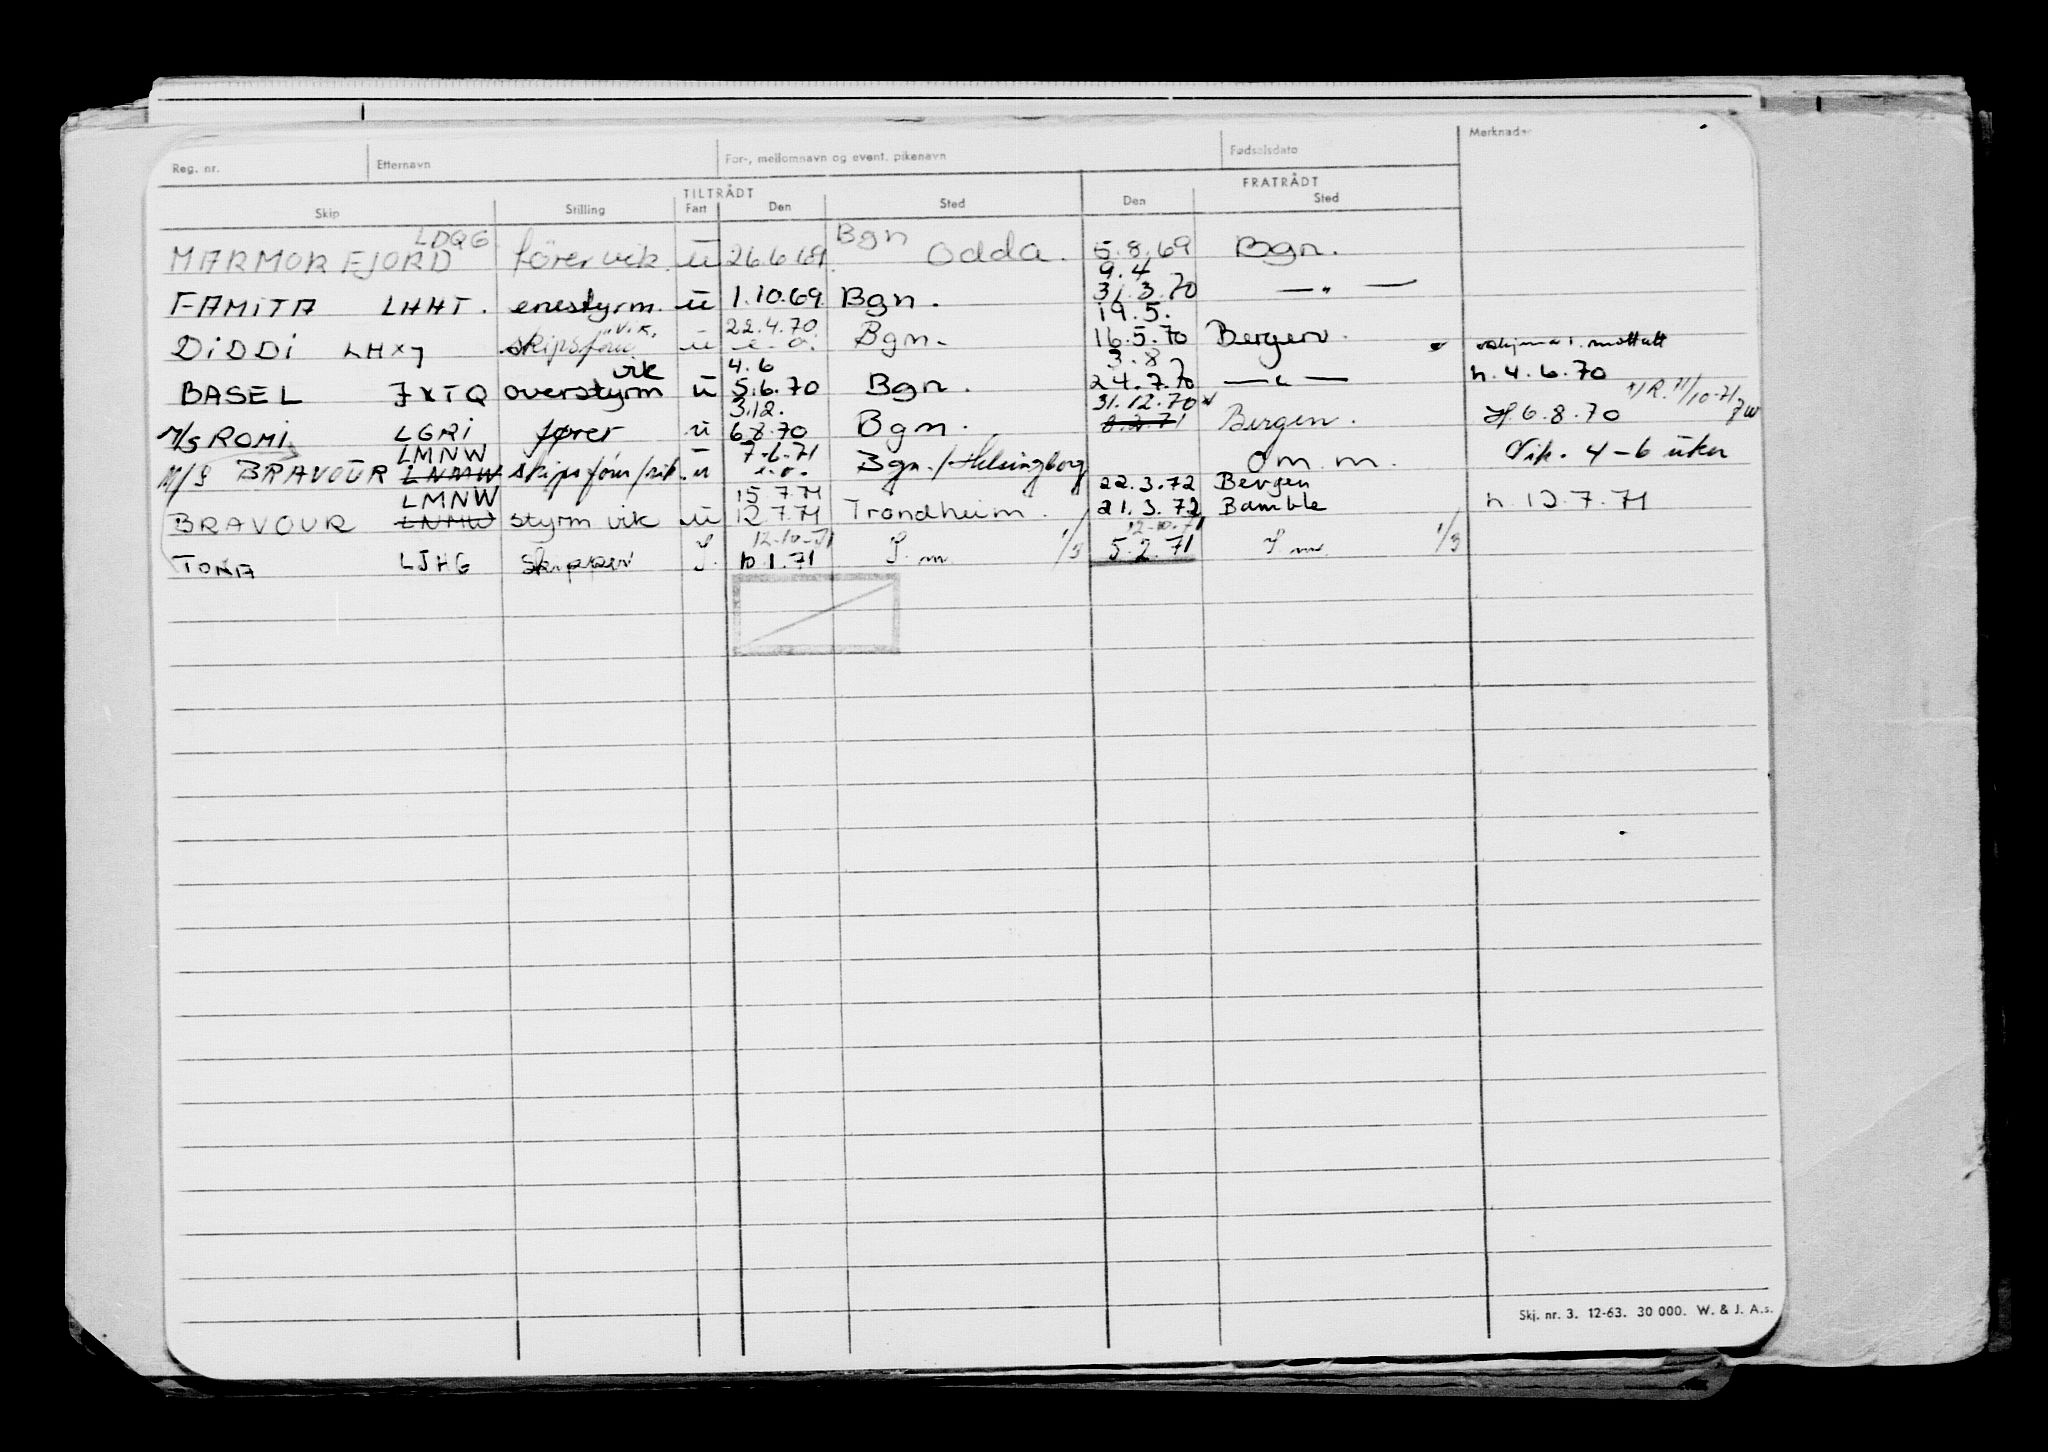 Reg. nr. Etternavn For-, mellomnavn og event. pikenavn Fødselsdato Merknader
TILTRÅDT FRATRÅDT
Skip Stilling Fart Den Sted Den Sted
LDQG Bgn
MARMORFJORD fører vik. u 26.6.69. Odda. 5.8.69 Bgn.
9.4
FAMITA LHHT. enestyrm. u 1.10.69 Bgn. 31.3.70 — " —
v.k. 22.4.70 19.5.
DIDDI LHXY skipsfører u Bgn. 16.5.70 Bergen. mottatt
vik 4.6 3.8
BASEL JXTQ overstyrm u 5.6.70 Bgn. 24.7.70 — " — h. 4.6.70
3.12. 31.12.70 x/R. 11/10-71
M/S ROMI LGRI fører u 6.8.70 Bgn. 8.2.71 Bergen. H. 6.8.70
LMNW 7.6.71
M/S BRAVOUR LNMW skipsfører/vik. u Bgn./Helsingborg Om m. Vik. 4-6 uker
LMNW 15.7.71 22.3.72 Bergen
BRAVOUR LNMW styrm vik u 12.7.71 Trondheim. 21.3.72 Bamble h. 12.7.71
12-10-71 12-10-71
TONA LJHG Skipper 10.1.71 1/3 5.2.71 1/3
Skj. nr. 3. 12-63. 30 000. W. & J. A.s.